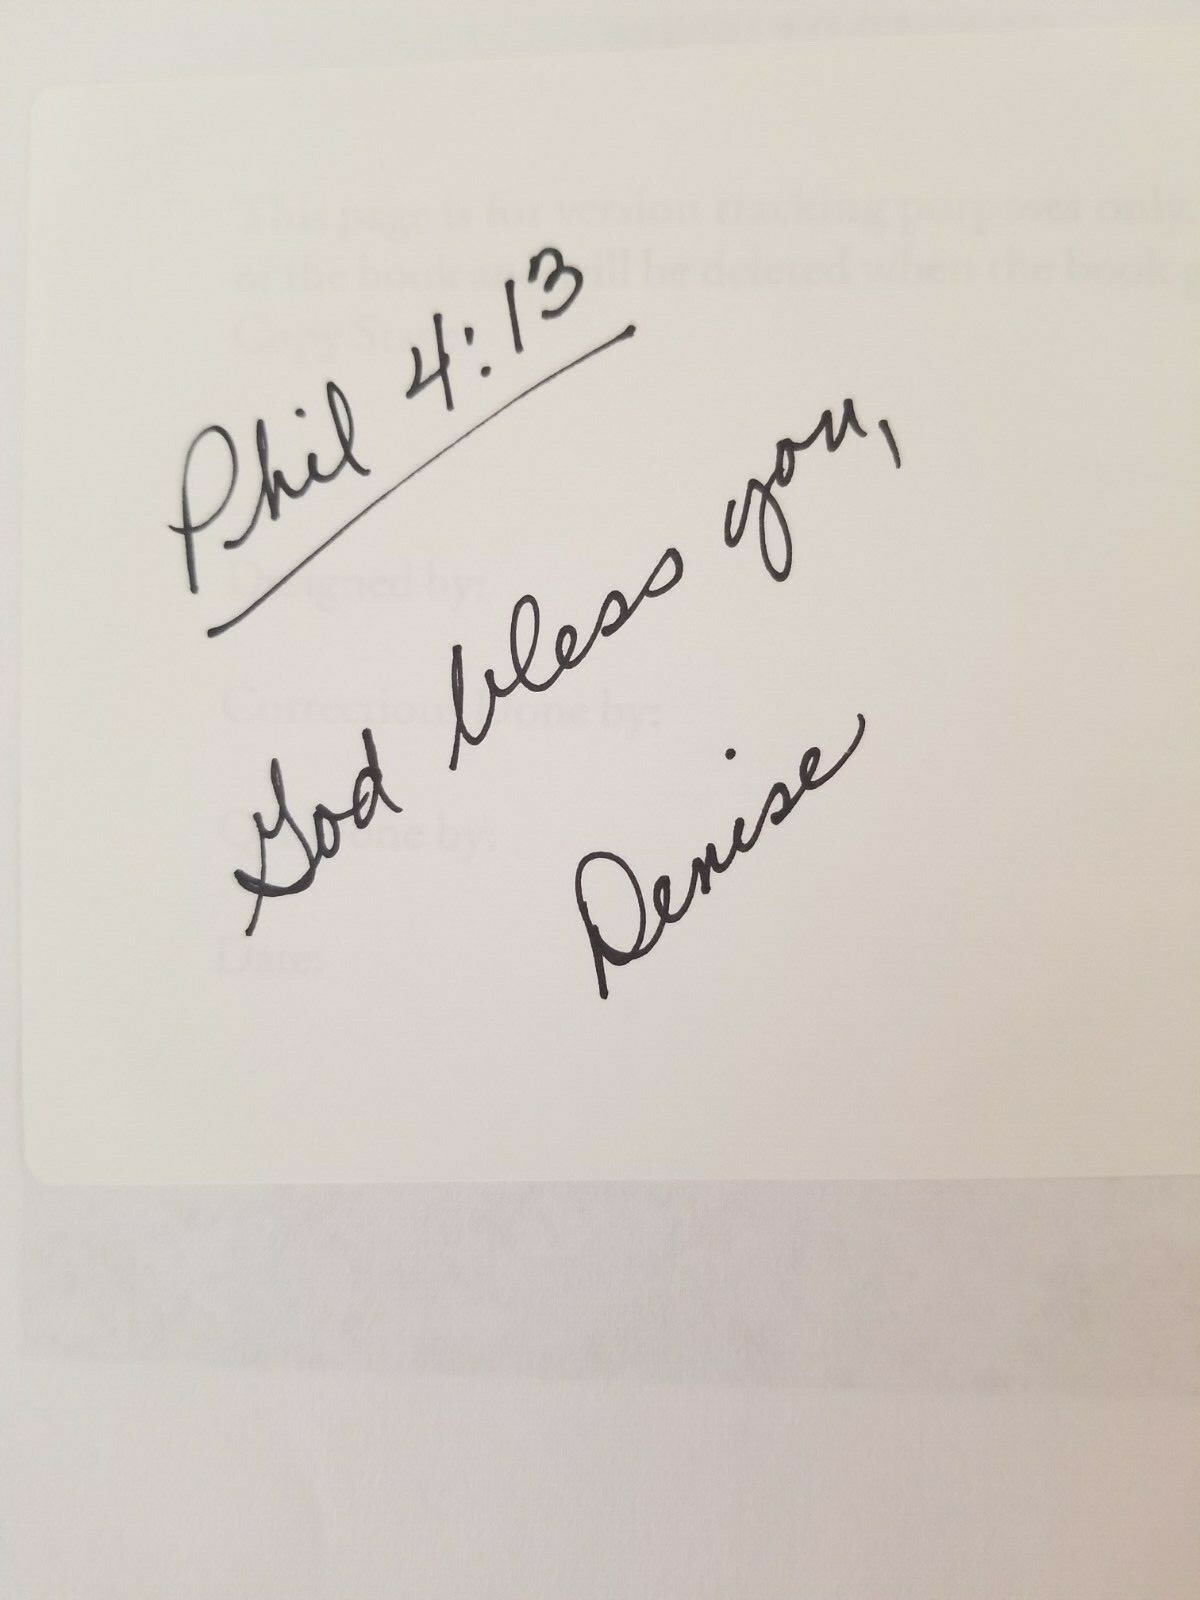 Phil 4:13
God bless you,
Denise
This page is for version tracking purposes only
of the book and will be deleted when the book
Designed by:
Corrections Done by:
Date: